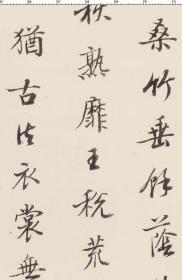 桑竹垂餘蔭
秋熟靡王稅荒
猶古法衣裳無